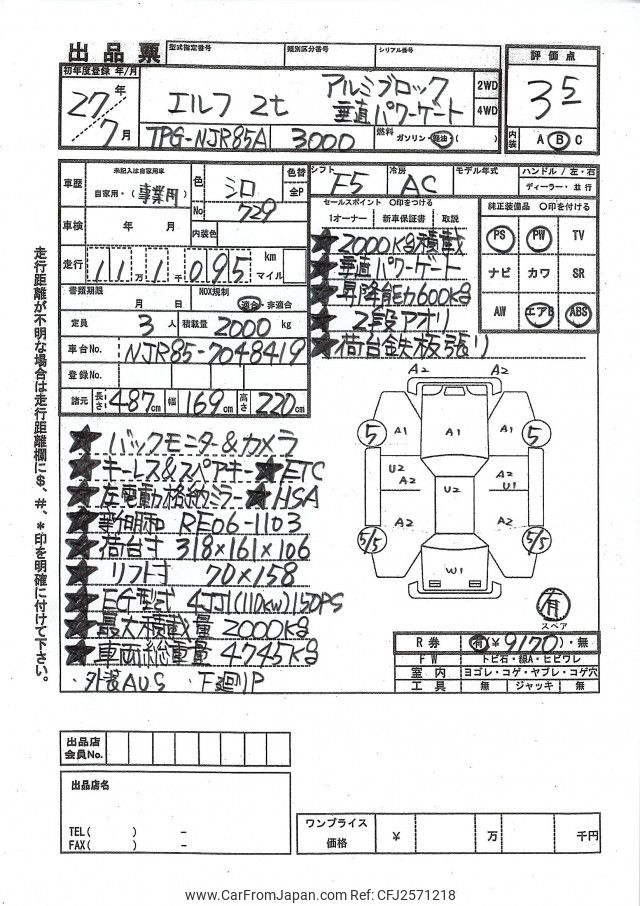 出品票
型式指定番号
類別区分番号
シリアル番号
評価点
初年度登録 年/月
27年
7月
エルフ 2t
アルミブロック
垂直パワーゲート
2WD
4WD
3 5
TPG-NJR85A
3000
燃料 ガソリン・軽油・( )
内装 A B C
車歴
未記入は自家用車
自家用・(事業用)
色
シロ
色替
全P
No 729
シフト
F5
冷房
AC
モデル年式
ハンドル / 左・右
ディーラー・並行
セールスポイント ○印をつける
1オーナー 新車保証書 取説
純正装備品 ○印を付ける
車検 年 月
内装色
走行 111万1千095 km マイル
PS PW TV
ナビ カワ SR
AW エアB ABS
書類期限 月 日
NOX規制
適合・非適合
定員 3人
積載量 2000 kg
車台No. NJR85-7048419
登録No.
諸元 長さ 487cm 幅 169cm 高さ 220cm
★2000Kg積載
★垂直パワーゲート
★昇降能力600Kg
★2段アオリ
★荷台鉄板張り
走行距離が不明な場合は走行距離欄に$、#、*印を明確に付けて下さい。
★バックモニター&カメラ
★キーレス&スペアキー★ETC
★左電動格納ミラー★HSA
★新明和 RE06-1103
★荷台寸 318×161×106
★リフト寸 70×158
★EG型式 4JJ1(110kw)150PS
★最大積載量 2000Kg
★車両総重量 4745Kg
・外装AUS ・下廻りP
A2 A2
5 A1 A1 A1 5
U2 A2 U2 A2 U1
A2 A2
5/5 5/5
W1
有
スペア
R券 有(¥9170)・無
FW トビ石・線A・ヒビワレ
室内 ヨゴレ・コゲ・ヤブレ・コゲ穴
工具 無 ジャッキ 無
出品店
会員No.
出品店名
TEL( ) -
FAX( ) -
ワンプライス
価格
¥ 万 千円
www.CarFromJapan.com Ref: CFJ2571218